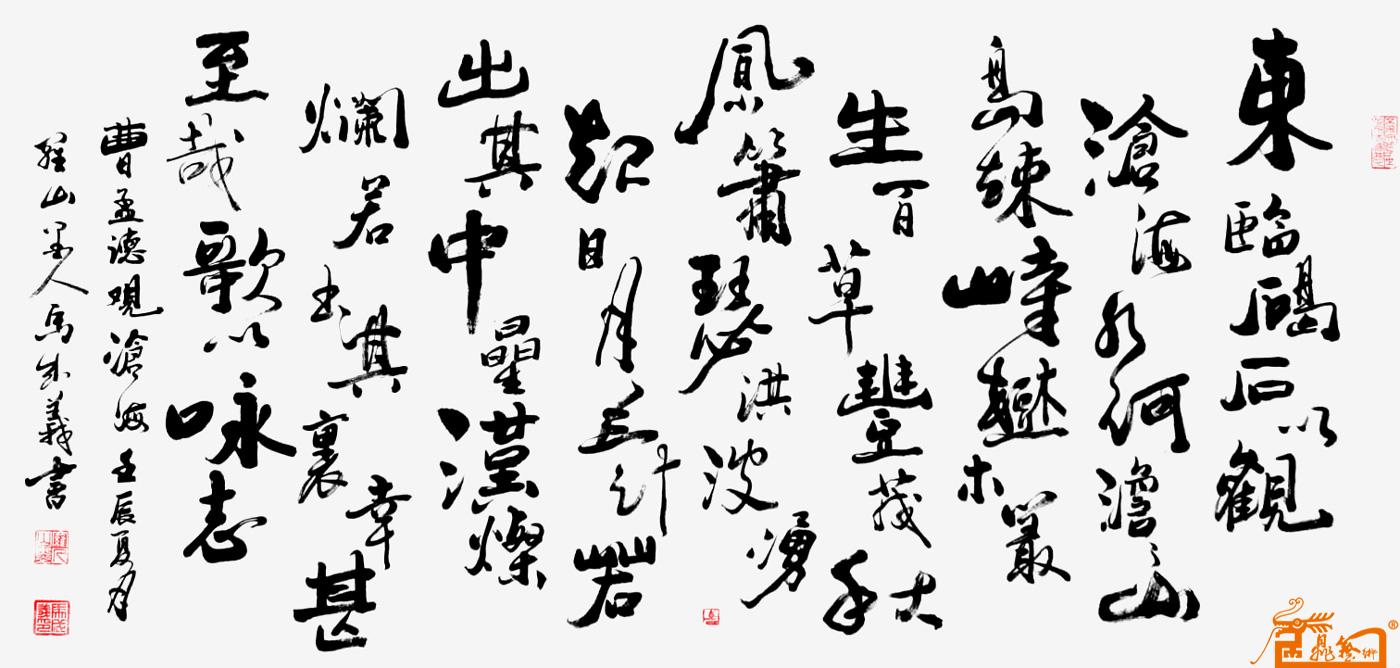 東臨碣石以觀
滄海水何澹〻山
島竦峙樹木叢
生百草豐茂秋
風蕭瑟洪波湧
起日月之行若
出其中星漢燦
爛若出其裏幸甚
至哉歌以咏志
曹孟德观滄海壬辰夏月
山墨人馬成義書